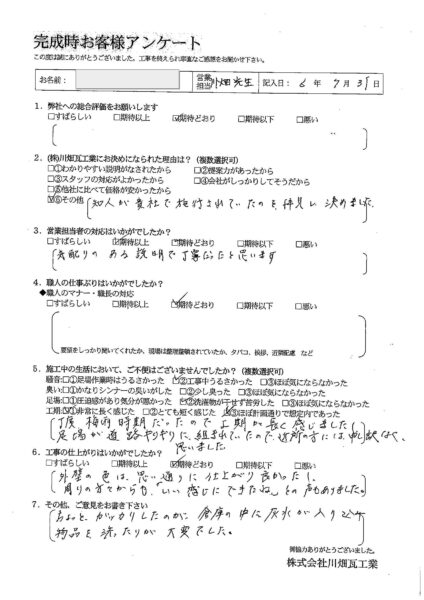 完成時お客様アンケート
この度は誠にありがとうございました。工事を終えられ率直なご感想をお聞かせ下さい。
お名前： 営業担当 川畑先生 記入日： 6 年 7月 31日
1．弊社への総合評価をお願いします
□すばらしい □期待以上 ☑期待どおり □期待以下 □悪い
2．(株)川畑瓦工業にお決めになられた理由は？（複数選択可）
□①わかりやすい説明がなされたから □②提案力があったから
□③スタッフの対応がよかったから □④会社がしっかりしてそうだから
□⑤他社に比べて価格が安かったから
☑⑥その他 知人が貴社で施行されていたのを拝見し決めました
3．営業担当者の対応はいかがでしたか？
□すばらしい ☑期待以上 □期待どおり □期待以下 □悪い
気配りのある説明で丁寧だったと思います
4．職人の仕事ぶりはいかがでしたか？
◆職人のマナー・職長の対応
□すばらしい □期待以上 ☑期待どおり □期待以下 □悪い
要望をしっかり聞いてくれたか、現場は整理整頓されていたか、タバコ、挨拶、近隣配慮 など
5．施工中の生活において、ご不便はございませんでしたか？（複数選択可）
騒音：□①足場作業時はうるさかった ☑②工事中うるさかった □③ほぼ気にならなかった
臭い：□①かなりシンナーの臭いがした □②少し臭った □③ほぼ気にならなかった
足場：□①圧迫感があり気分が悪かった ☑②洗濯物が干せず苦労した □③ほぼ気にならなかった
工期：☑①非常に長く感じた □②とても短く感じた ☑③ほぼ計画通りで想定内であった
丁度 梅雨時期だったので工期が長く感じました
足場が道路ギリギリに組まれていたので近所の方には申し訳なく
思いました
6．工事の仕上がりはいかがでしたか？
□すばらしい □期待以上 ☑期待どおり □期待以下 □悪い
外壁の色は、思い通りに仕上がり良かったし、
周りの方々からも、「いい感じにできたね」との声もありました。
7．その他、ご意見をお書き下さい
ちょっと、ガッカリしたのが、倉庫の中に灰水が入り込み
物品を洗ったりが大変でした。
御協力ありがとうございました。
株式会社川畑瓦工業